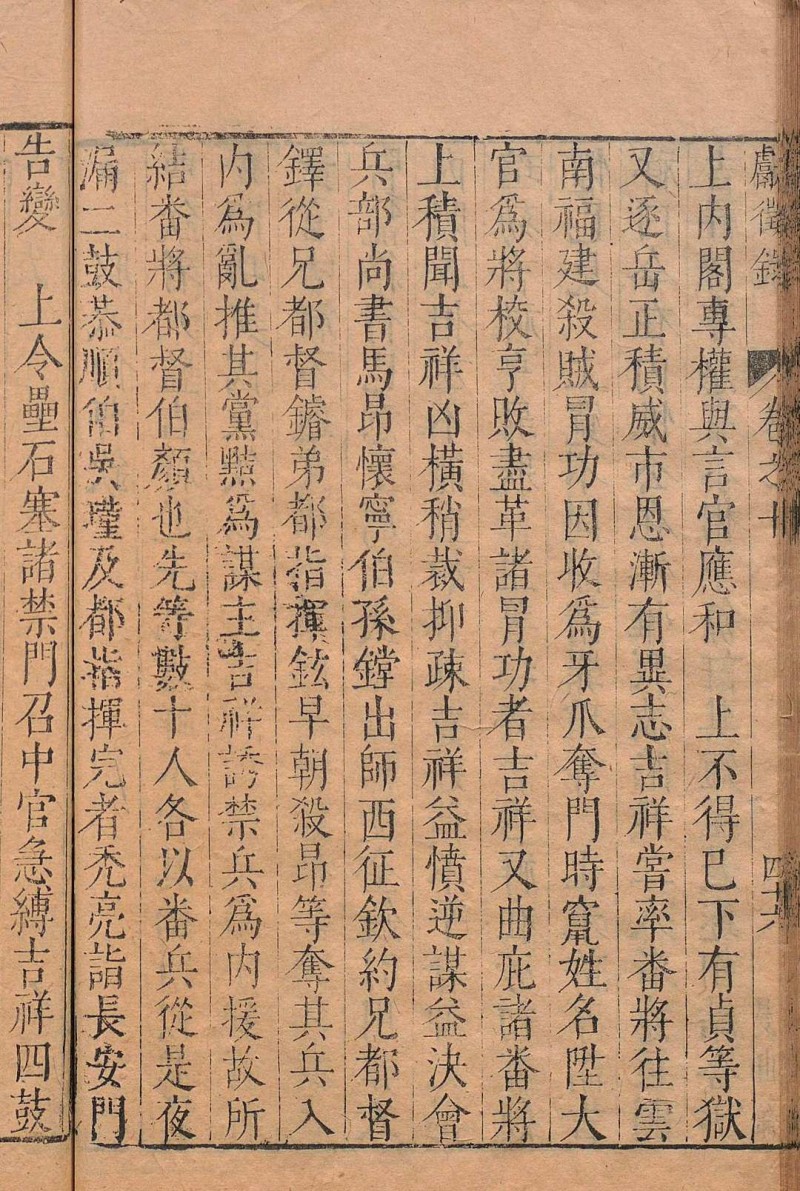 獻徵錄 卷之十 四十六
上内閣專權與言官應和　上不得已下有貞等獄
又逐岳正積威市恩漸有異志吉祥嘗率番將往雲
南福建殺賊冒功因收爲牙爪奪門時竄姓名陞大
官爲將校亨敗盡革諸冒功者吉祥又曲庇諸番將
上積聞吉祥凶橫稍裁抑疎吉祥益憤逆謀益決會
兵部尚書馬昂懷寧伯孫鏜出師西征欽約兄都督
鐸從兄都督鐥弟都指揮鉉早朝殺昂等奪其兵入
内爲亂推其黨黠爲謀主吉祥誘禁兵爲内援故所
結番將都督伯顏也先等數十人各以番兵從是夜
漏二鼓恭順伯吳瑾及都指揮完者禿亮詣長安門
告變　上令壘石塞諸禁門召中官急縛吉祥四鼓